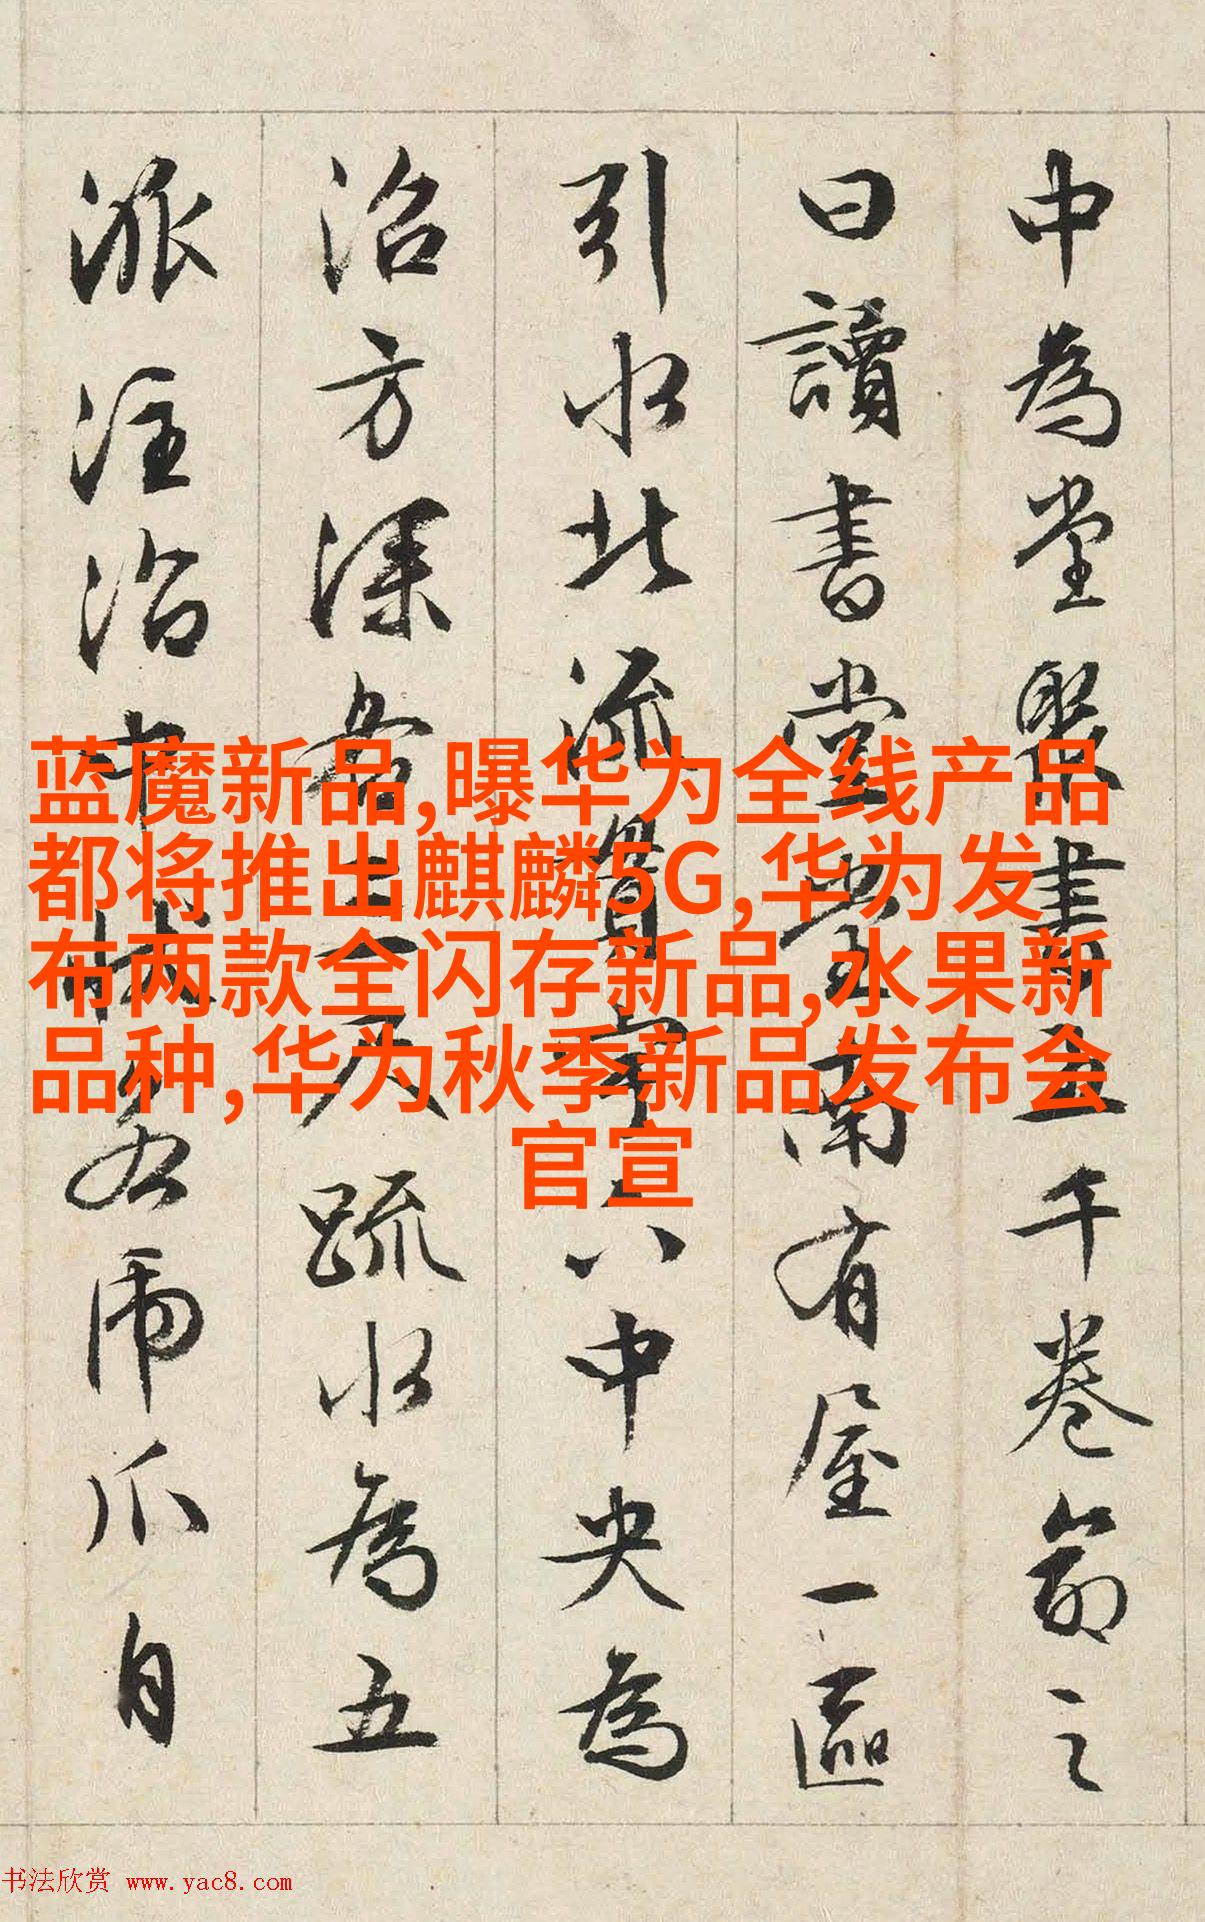 中為堂聚書五千卷命之
曰讀書堂堂南有屋一區
引水北流貫宇下中央為
沼方深各三尺疏水為五
派注沼中狀若虎爪自
蓝魔新品,曝华为全线产品
都将推出麒麟5G,华为发
布两款全闪存新品,水果新
品种,华为秋季新品发布会
官宣
书法欣赏 www.yac8.com